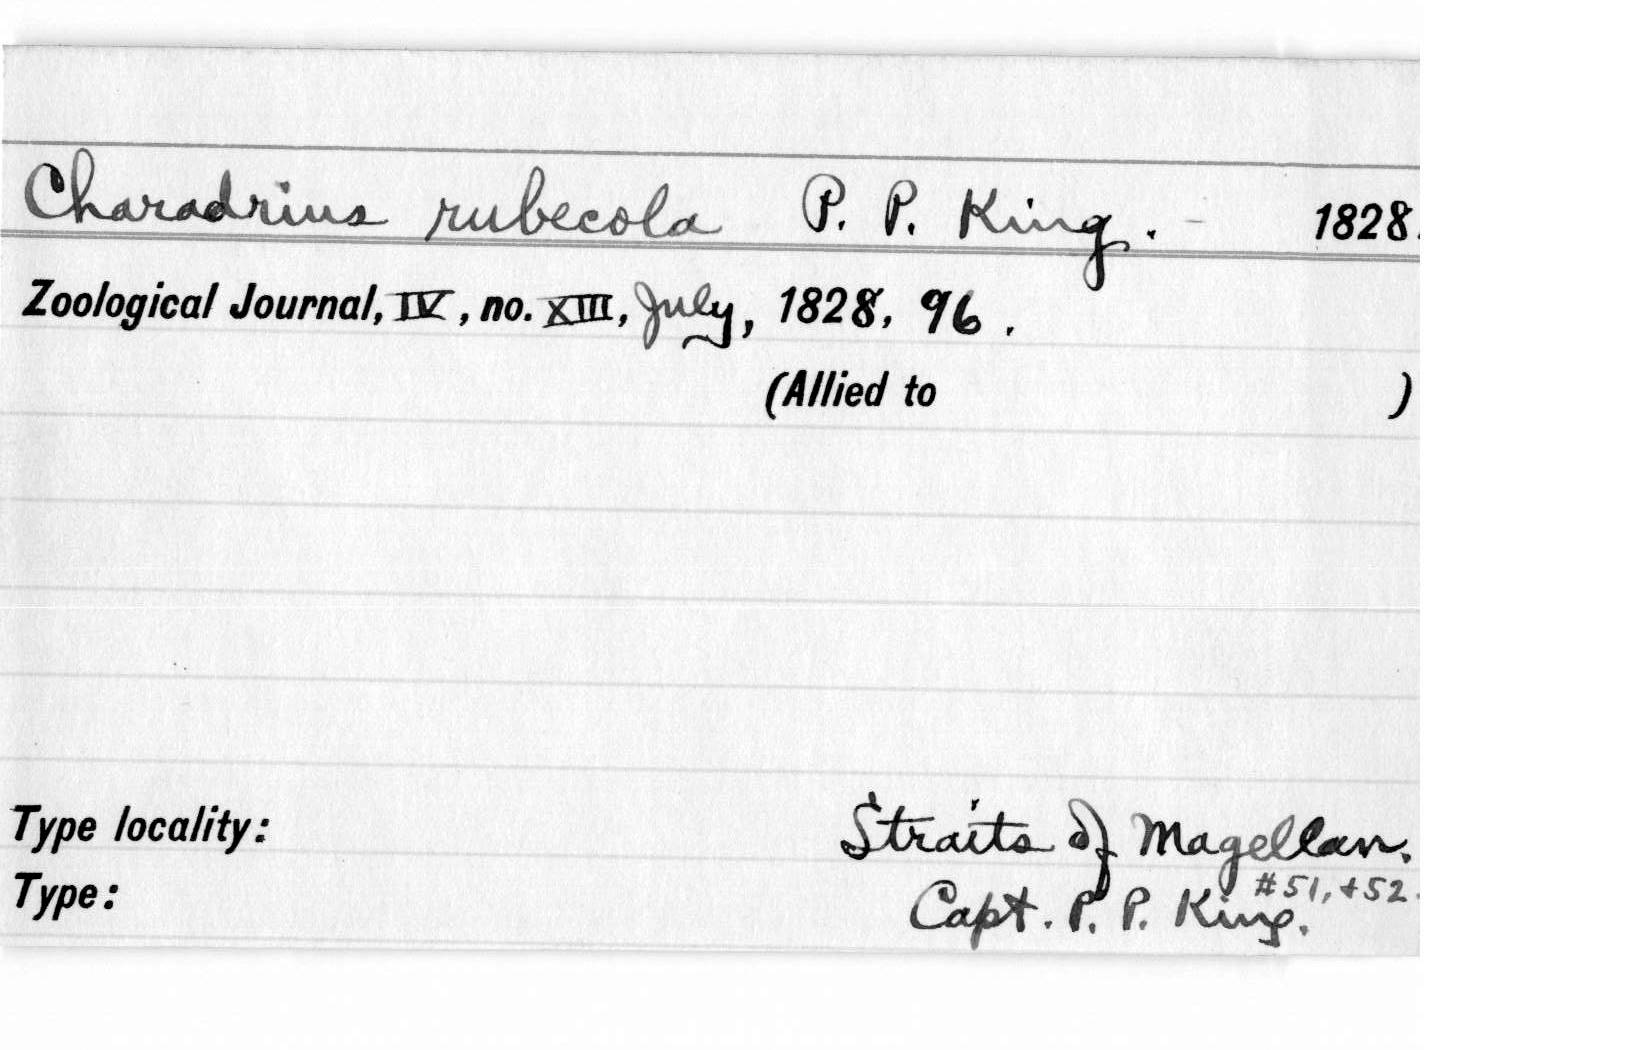 Charadrius rubecola P. P. King. - 1828.
Zoological Journal, IV, no. XIII, July, 1828, 96.
(Allied to )
Type locality: Straits of Magellan.
Type: Capt. P. P. King. #51, +52.